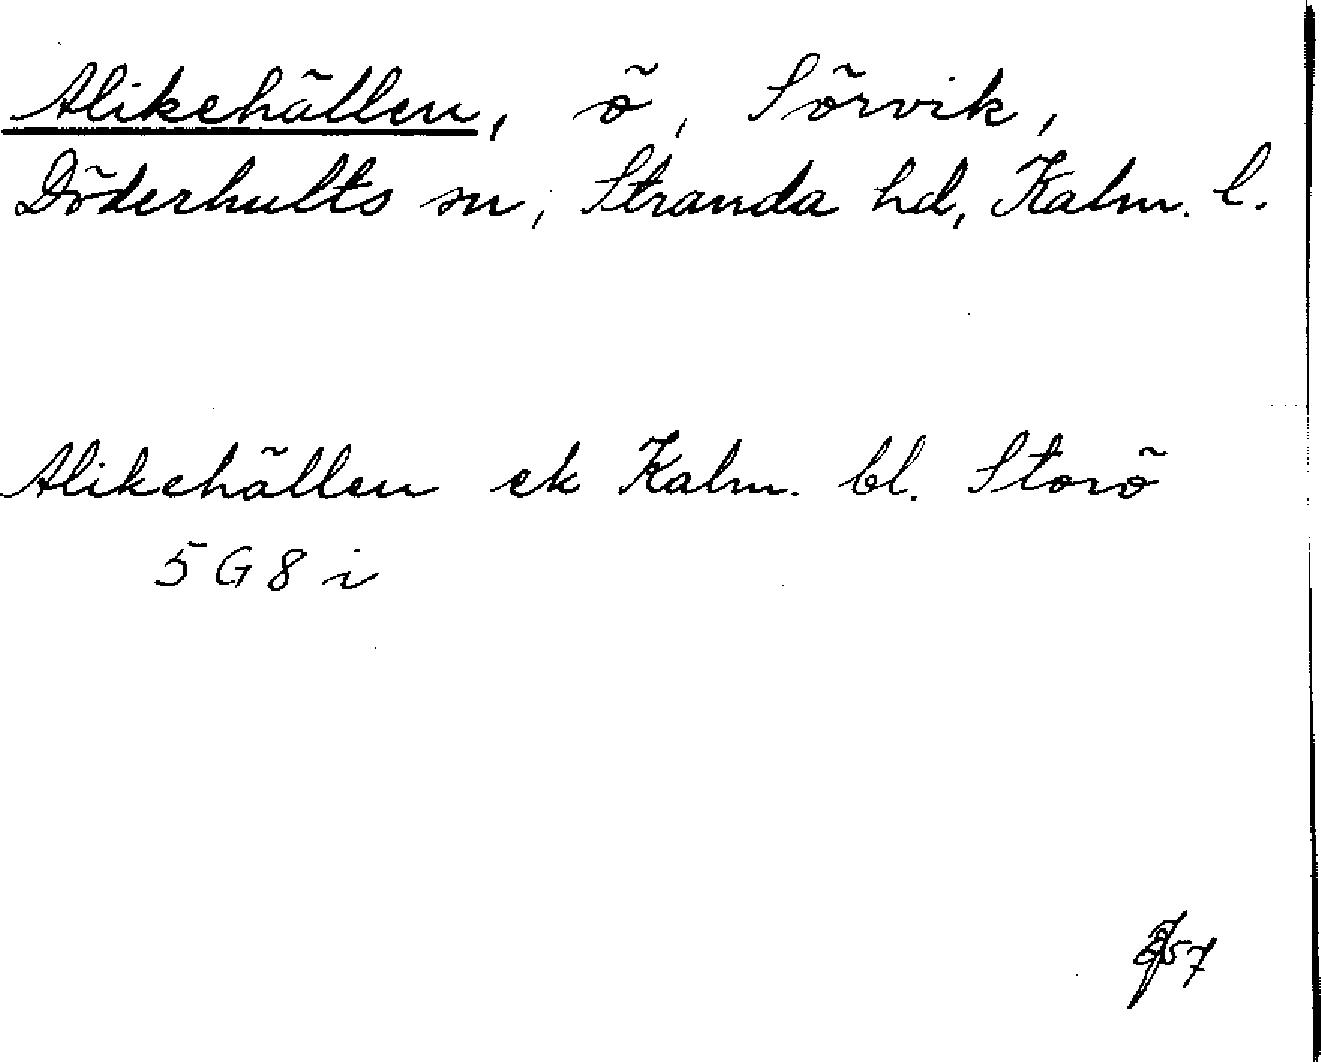 Alikehällen, ö, Sörvik,
Döderhults sn, Stranda hd, Kalm. l.
Alikehällen ek Kalm. bl. Storö
5 G 8 i
57